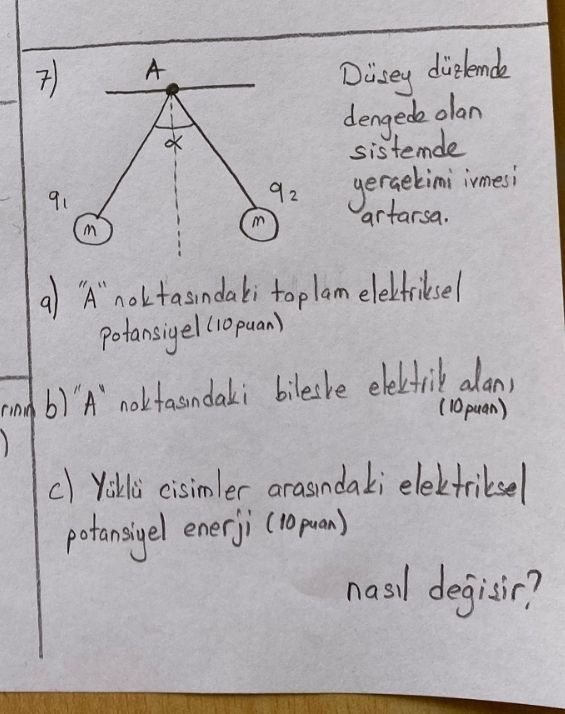 7)
A
α
q1
q2
m
m
Düşey düzlemde
dengede olan
sistemde
yerçekimi ivmesi
artarsa.
a) "A" noktasındaki toplam elektriksel
potansiyel (10 puan)
b) "A" noktasındaki bileşke elektrik alanı
(10 puan)
c) Yüklü cisimler arasındaki elektriksel
potansiyel enerji (10 puan)
nasıl değişir?